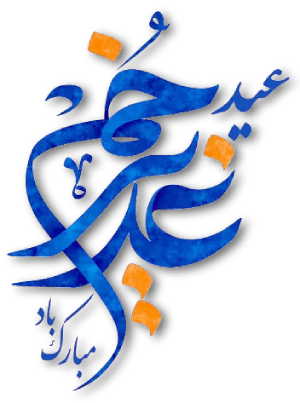 عید
غدیر خم
مبارک باد